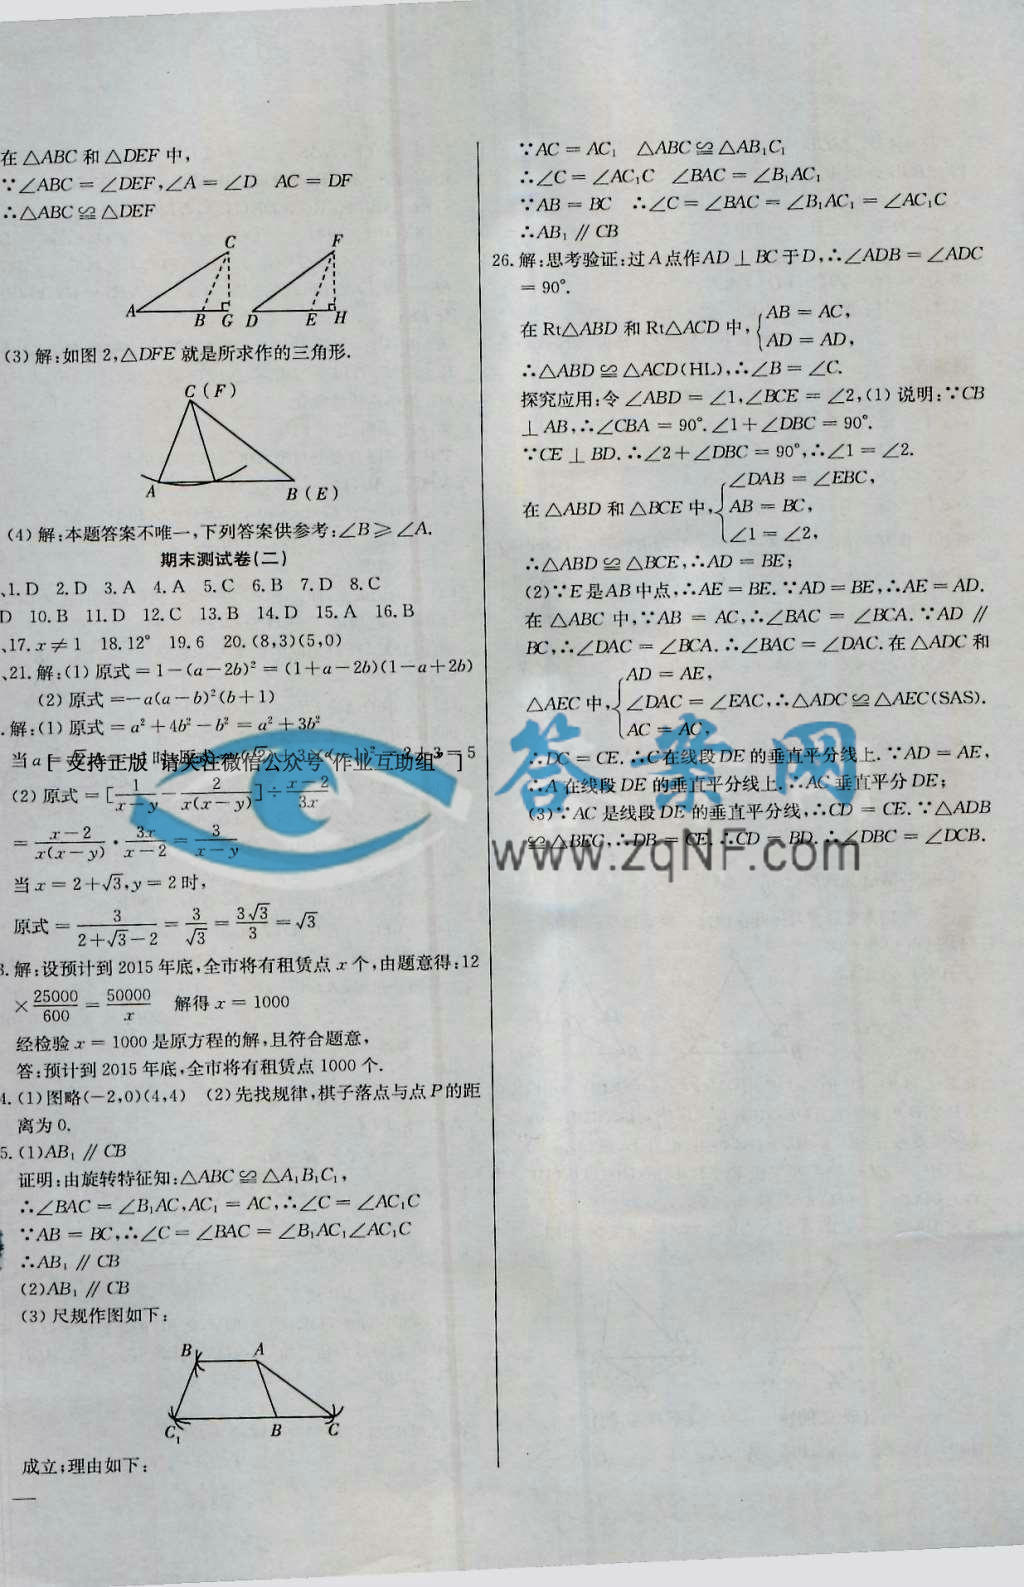 在 △ABC 和 △DEF 中,
∵∠ABC = ∠DEF,∠A = ∠D AC = DF
∴△ABC ≌ △DEF
C F
A B G D E H
(3) 解:如图 2,△DFE 就是所求作的三角形.
C (F)
A B (E)
(4) 解:本题答案不唯一,下列答案供参考:∠B ⩾ ∠A.
期末测试卷(二)
、1. D 2. D 3. A 4. A 5. C 6. B 7. D 8. C
D 10. B 11. D 12. C 13. B 14. D 15. A 16. B
、17. x ≠ 1 18. 12° 19. 6 20. (8,3)(5,0)
、21. 解:(1) 原式 = 1-(a-2b)² = (1+a-2b)(1-a+2b)
(2) 原式 =-a(a-b)²(b+1)
. 解:(1) 原式 = a²+4b²-b² = a²+3b²
当 a =
[ 支持正版 请关注微信公众号“作业互助组” ]
(2) 原式 = [1/(x-y) - 2/(x(x-y))] ÷ (x-2)/3x
= (x-2)/(x(x-y)) · 3x/(x-2) = 3/(x-y)
当 x = 2+√3, y = 2 时,
原式 = 3/(2+√3-2) = 3/√3 = 3√3/3 = √3
3. 解:设预计到 2015 年底,全市将有租赁点 x 个,由题意得:12
× 25000/600 = 50000/x 解得 x = 1000
经检验 x = 1000 是原方程的解,且符合题意,
答:预计到 2015 年底,全市将有租赁点 1000 个.
4. (1) 图略(-2,0)(4,4) (2) 先找规律,棋子落点与点 P 的距
离为 0.
5. (1)AB₁ // CB
证明:由旋转特征知:△ABC ≌ △A₁B₁C₁,
∴∠BAC = ∠B₁AC,AC₁ = AC,∴∠C = ∠AC₁C
∵AB = BC,∴∠C = ∠BAC = ∠B₁AC₁∠AC₁C
∴AB₁ // CB
(2)AB₁ // CB
(3) 尺规作图如下:
B A
C₁ B C
成立;理由如下:
∵AC = AC₁ △ABC ≌ △AB₁C₁
∴∠C = ∠AC₁C ∠BAC = ∠B₁AC₁
∵AB = BC ∴∠C = ∠BAC = ∠B₁AC₁ = ∠AC₁C
∴AB₁ // CB
26. 解:思考验证:过 A 点作 AD ⊥ BC 于 D,∴∠ADB = ∠ADC
= 90°.
在 Rt△ABD 和 Rt△ACD 中, { AB = AC,
AD = AD,
∴△ABD ≌ △ACD(HL),∴∠B = ∠C.
探究应用:令 ∠ABD = ∠1,∠BCE = ∠2,(1) 说明:∵CB
⊥ AB,∴∠CBA = 90°.∠1+∠DBC = 90°.
∵CE ⊥ BD.∴∠2+∠DBC = 90°,∴∠1 = ∠2.
在 △ABD 和 △BCE 中, { ∠DAB = ∠EBC,
AB = BC,
∠1 = ∠2,
∴△ABD ≌ △BCE,∴AD = BE;
(2)∵E 是 AB 中点,∴AE = BE.∵AD = BE,∴AE = AD.
在 △ABC 中,∵AB = AC,∴∠BAC = ∠BCA.∵AD //
BC,∴∠DAC = ∠BCA.∴∠BAC = ∠DAC. 在 △ADC 和
△AEC 中, { AD = AE,
∠DAC = ∠EAC,∴△ADC ≌ △AEC(SAS).
AC = AC,
∴DC = CE.∴C 在线段 DE 的垂直平分线上.∵AD = AE,
∴A 在线段 DE 的垂直平分线上.∴AC 垂直平分 DE;
(3)∵AC 是线段 DE 的垂直平分线,∴CD = CE.∵△ADB
≌ △BEC,∴DB = CE.∴CD = BD.∴∠DBC = ∠DCB.
答案网
www.zqNF.com